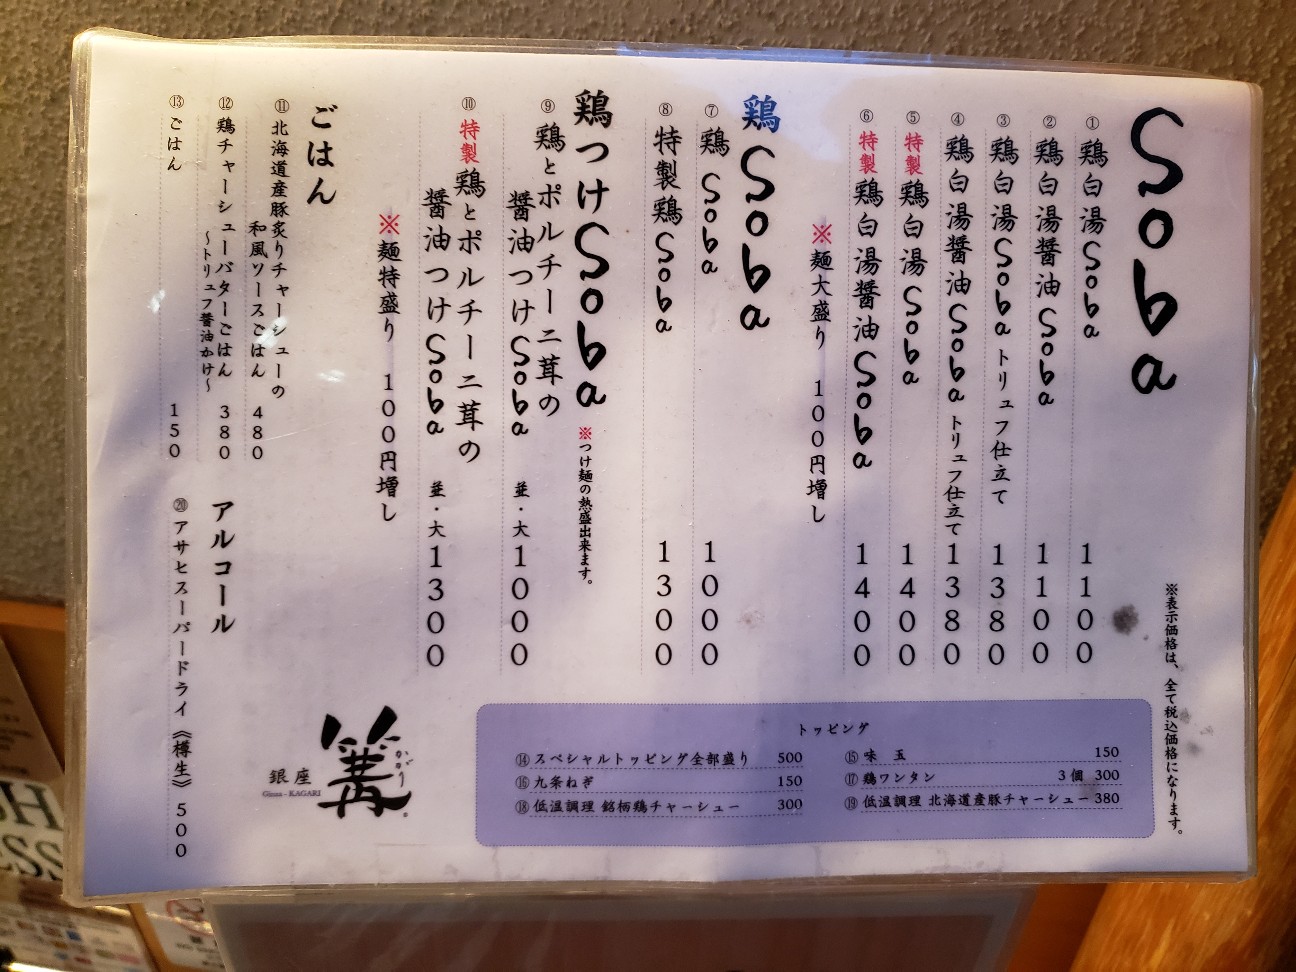 Soba
①鶏白湯Soba 1100
②鶏白湯醤油Soba 1100
③鶏白湯Sobaトリュフ仕立て 1380
④鶏白湯醤油Sobaトリュフ仕立て 1380
⑤特製鶏白湯Soba 1400
⑥特製鶏白湯醤油Soba 1400
※麺大盛り 100円増し
鶏Soba
⑦鶏Soba 1000
⑧特製鶏Soba 1300
鶏つけSoba ※つけ麺の熱盛出来ます。
⑨鶏とポルチーニ茸の
醤油つけSoba 並・大 1000
⑩特製鶏とポルチーニ茸の
醤油つけSoba 並・大 1300
※麺特盛り 100円増し
ごはん
⑪北海道産豚炙りチャーシューの
和風ソースごはん 480
⑫鶏チャーシューバターごはん 380
〜トリュフ醤油かけ〜
⑬ごはん 150
アルコール
⑳アサヒスーパードライ《樽生》 500
※表示価格は、全て税込価格になります。
トッピング
⑭スペシャルトッピング全部盛り 500
⑮味 玉 150
⑯九条ねぎ 150
⑰鶏ワンタン 3個 300
⑱低温調理 銘柄鶏チャーシュー 300
⑲低温調理 北海道産豚チャーシュー 380
銀座
Ginza - KAGARI
篝
かがり